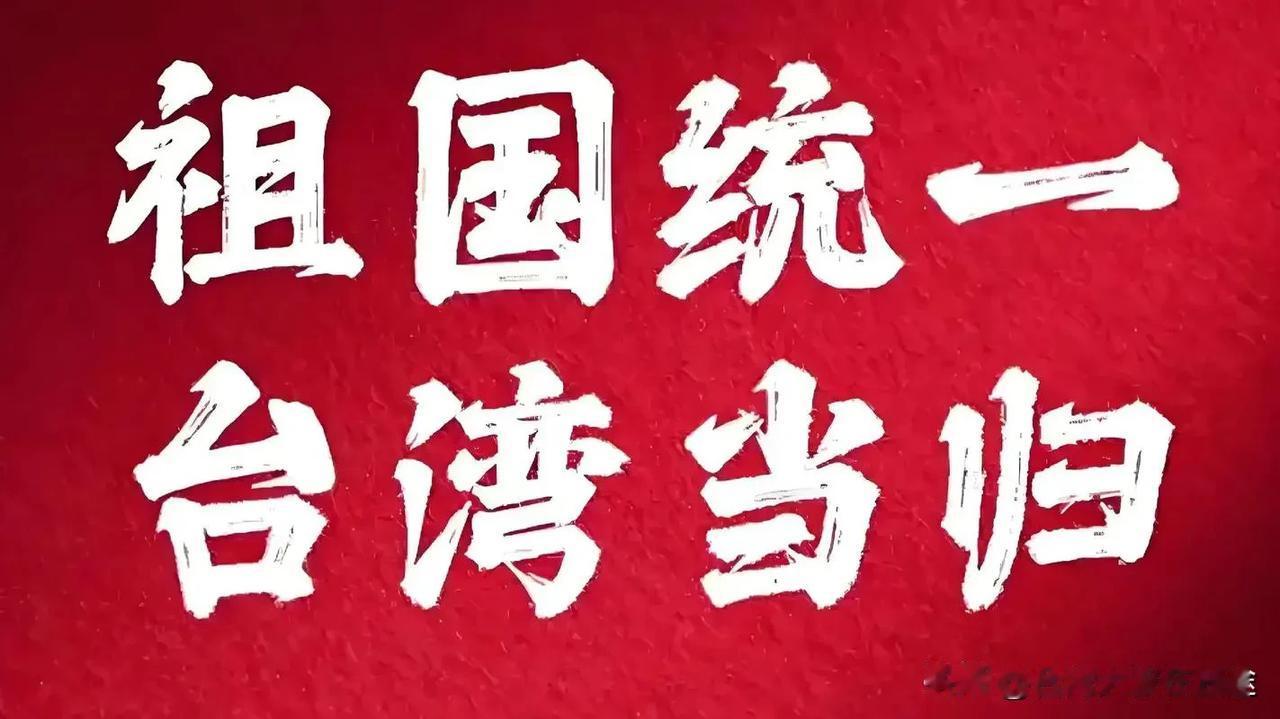 祖国统一
台湾当归